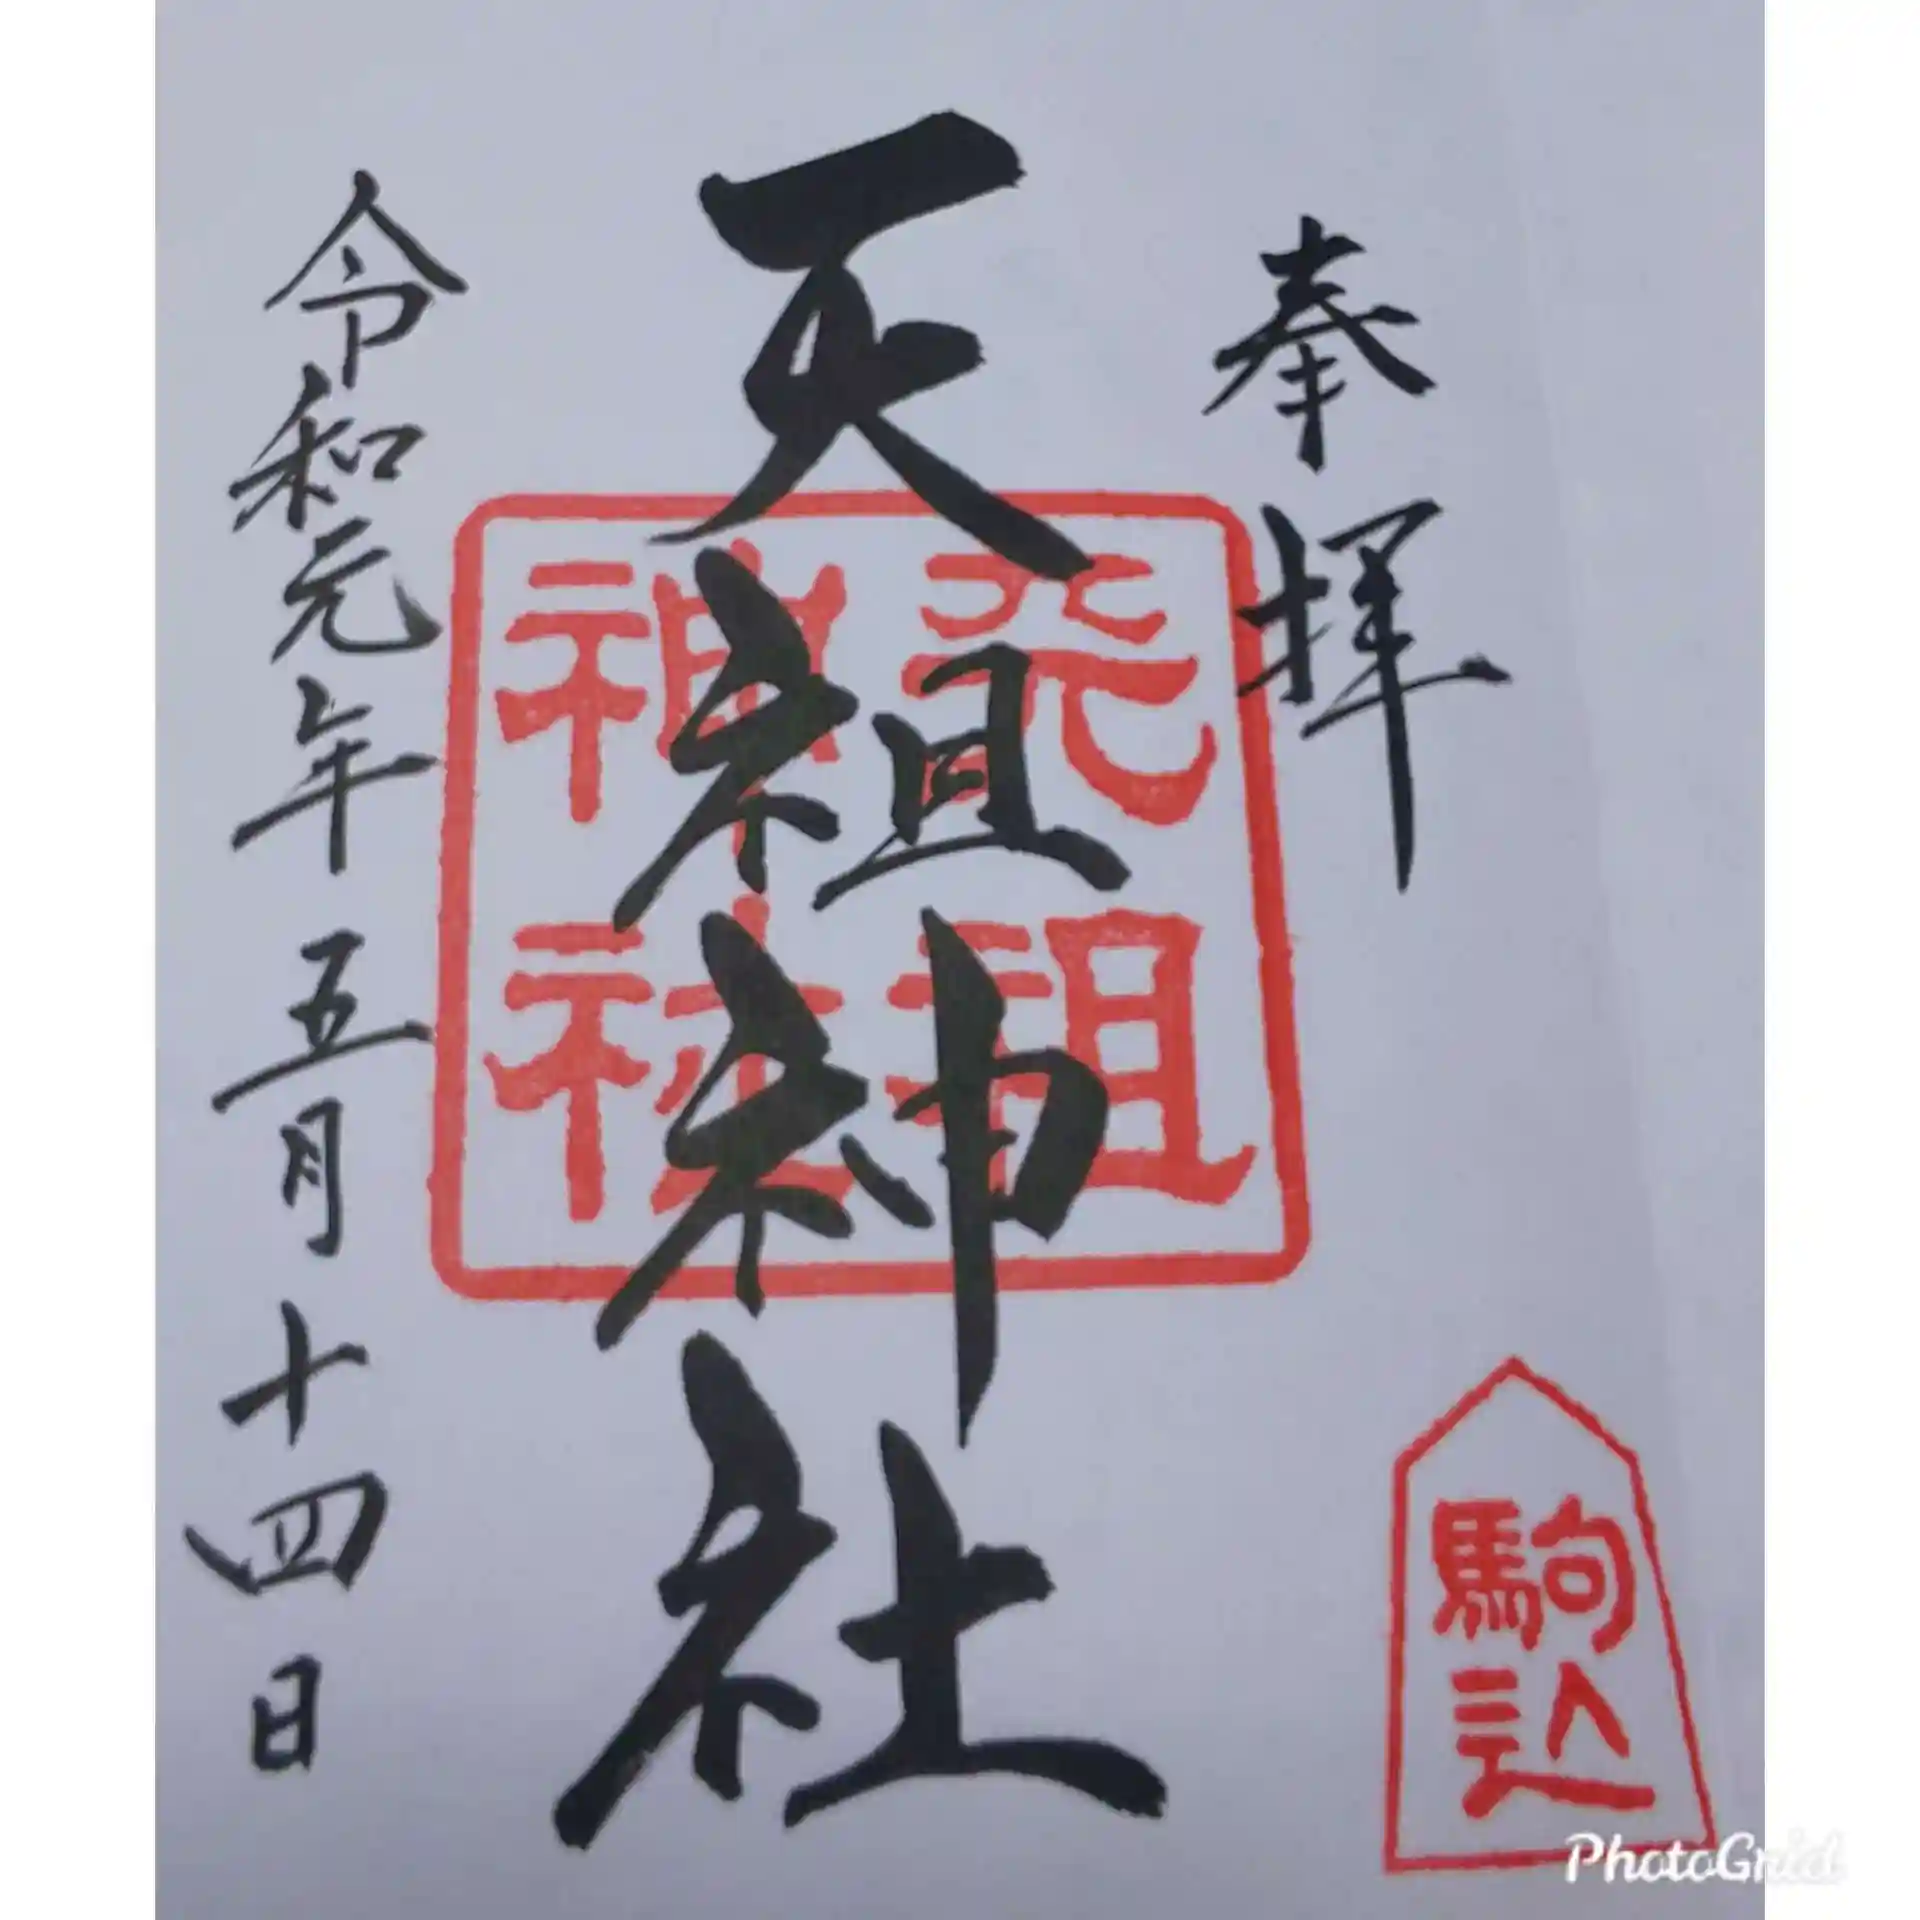 奉拝
天祖神社
天祖
神社
令和元年五月十四日
駒込
PhotoGrid